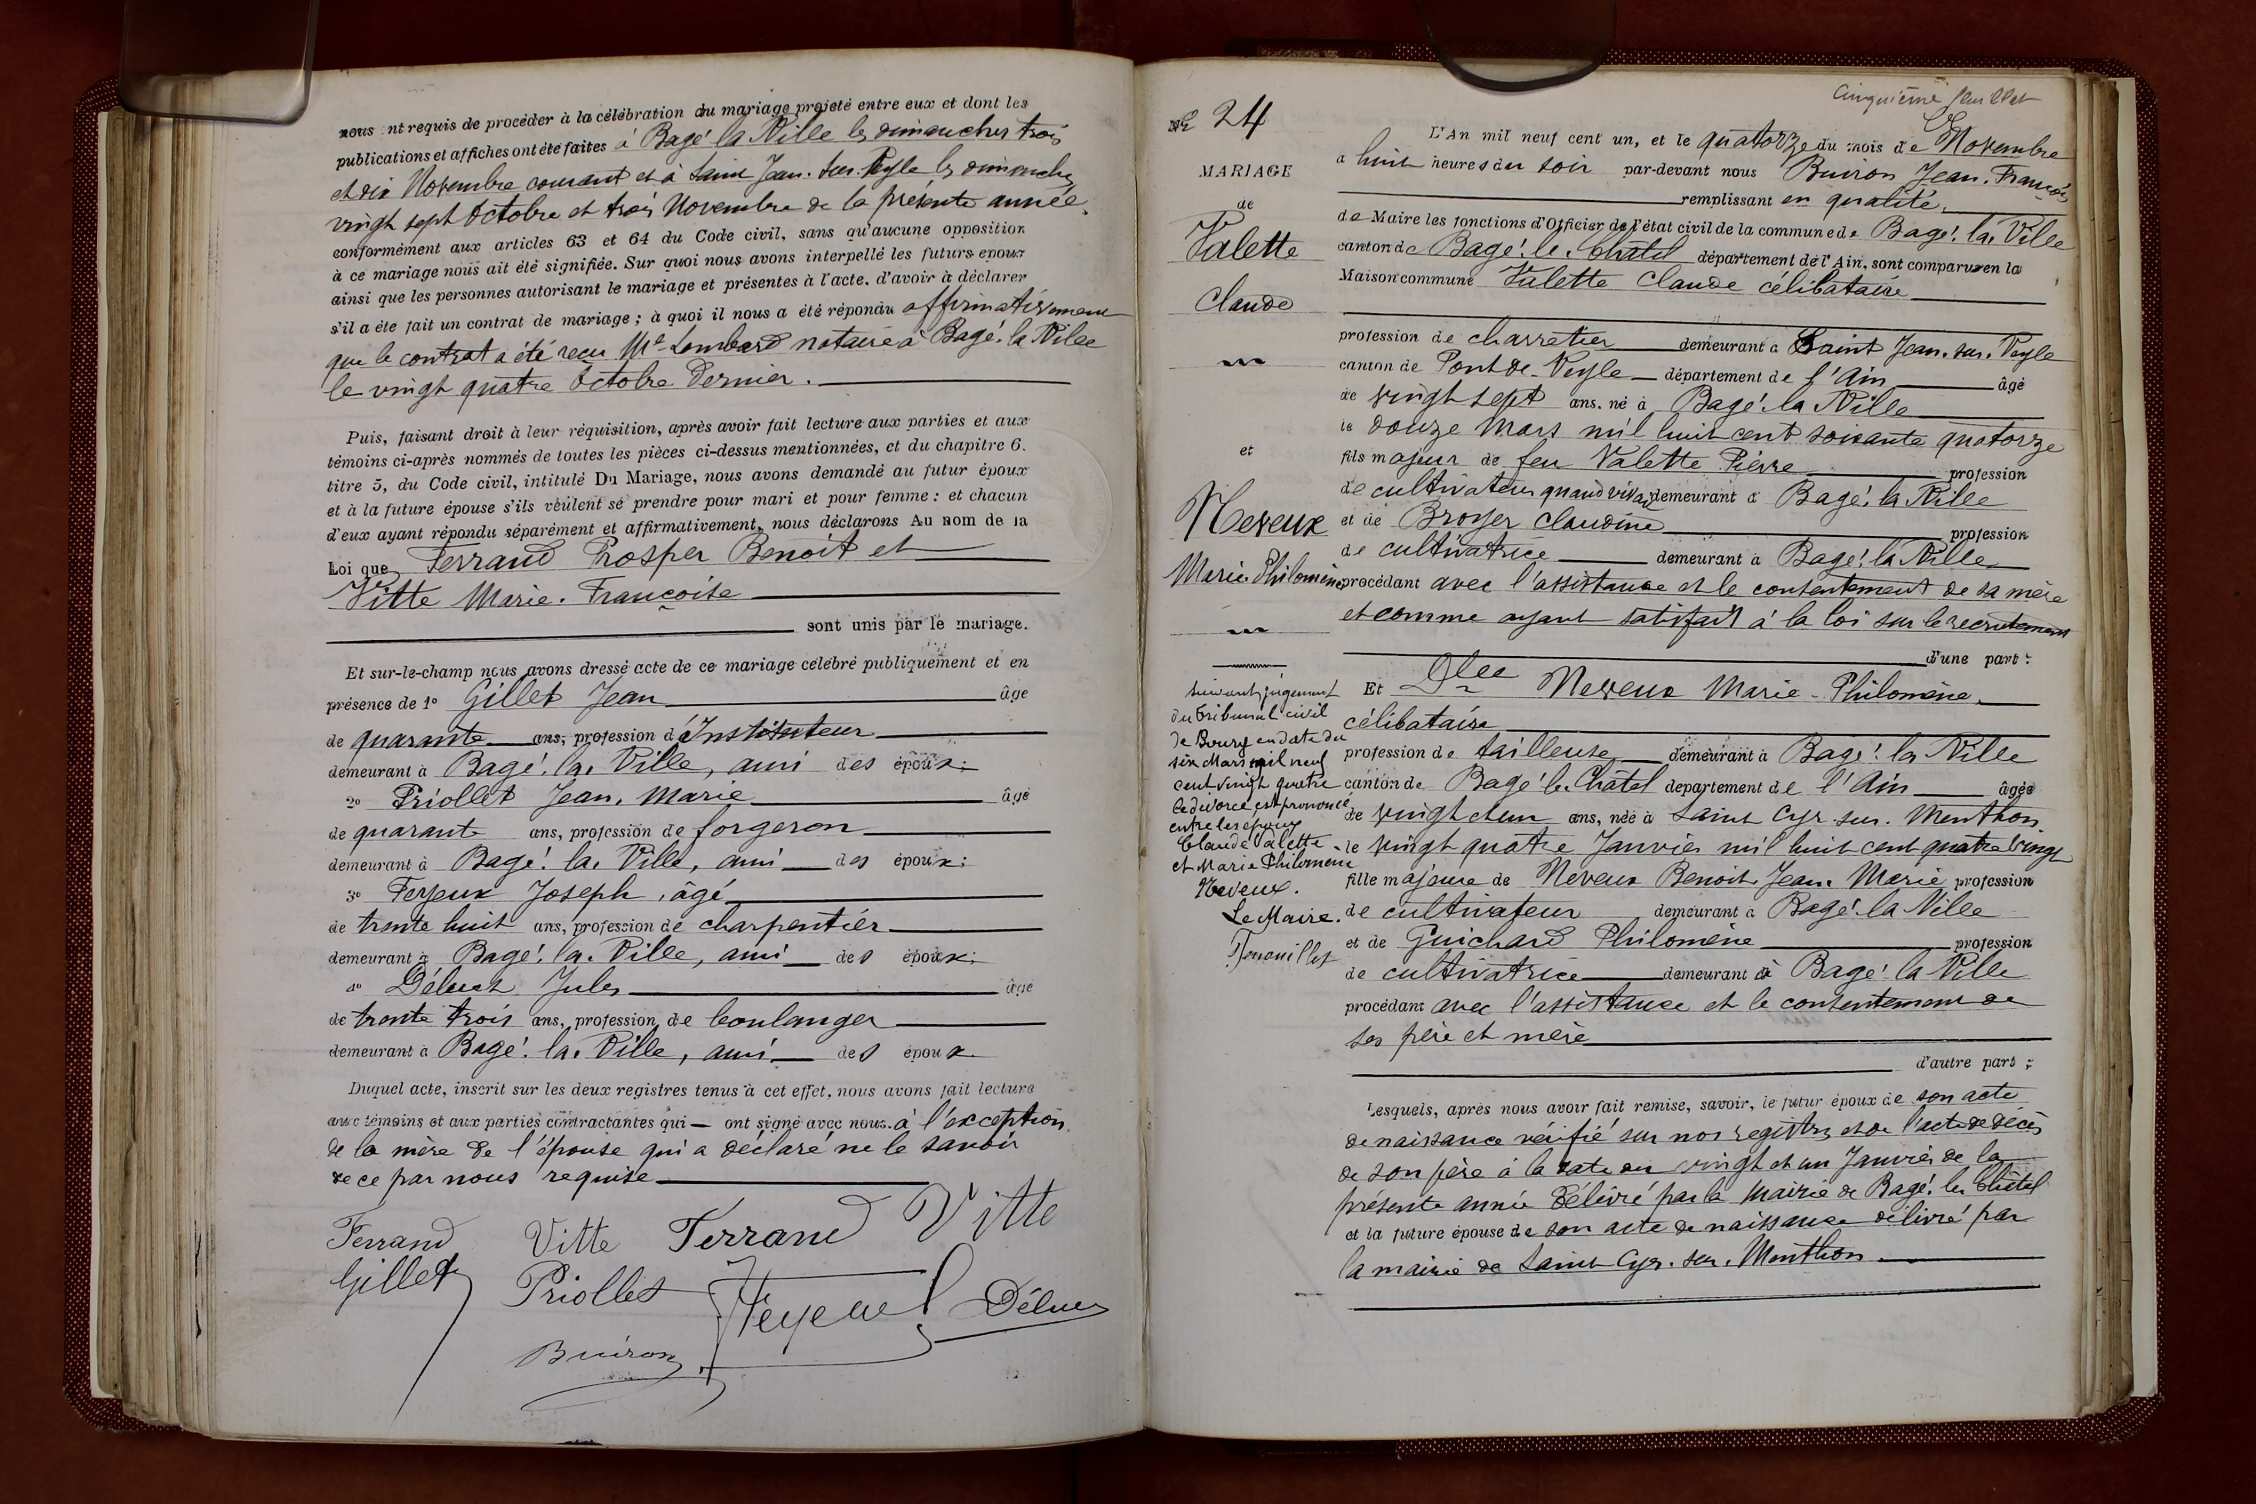 nous ont requis de procéder à la célébration du mariage projeté entre eux et dont les
publications et affiches ont été faites à Bagé la Ville les dimanches trois
et dix Novembre courant et à Saint Jean-sur-Veyle les dimanches
vingt sept Octobre et trois Novembre de la présente année,
conformément aux articles 63 et 64 du Code civil, sans qu'aucune opposition
à ce mariage nous ait été signifiée. Sur quoi nous avons interpellé les futurs époux
ainsi que les personnes autorisant le mariage et présentes à l'acte, d'avoir à déclarer
s'il a été fait un contrat de mariage ; à quoi il nous a été répondu affirmativement
que le contrat a été reçu Me Lombard notaire à Bagé-la Ville
le vingt quatre Octobre dernier.
Puis, faisant droit à leur réquisition, après avoir fait lecture aux parties et aux
témoins ci-après nommés de toutes les pièces ci-dessus mentionnées, et du chapitre 6.
titre 5, du Code civil, intitulé Du Mariage, nous avons demandé au futur époux
et à la future épouse s'ils veulent se prendre pour mari et pour femme : et chacun
d'eux ayant répondu séparément et affirmativement, nous déclarons Au nom de la
Loi que Ferrand Prosper Benoit et
Vitte Marie-Françoise
sont unis par le mariage.
Et sur-le-champ nous avons dressé acte de ce mariage célébré publiquement et en
présence de 1o Gillet Jean âgé
de quarante ans, profession d'Instituteur
demeurant à Bagé-la-Ville, ami des époux;
2o Priollet Jean-Marie âgé
de quarante ans, profession de forgeron
demeurant à Bagé-la-Ville, ami des époux;
3o Feyeux Joseph, âgé
de trente huit ans, profession de charpentier
demeurant à Bagé-la-Ville, ami des époux;
4o Déluez Jules âgé
de trente trois ans, profession de boulanger
demeurant à Bagé-la-Ville, ami des époux.
Duquel acte, inscrit sur les deux registres tenus à cet effet, nous avons fait lecture
aux témoins et aux parties contractantes qui ont signé avec nous. à l'exception
de la mère de l'épouse qui a déclaré ne le savoir
de ce par nous requise
Ferrand Vitte Ferrand Vitte
Gillet Priollet Feyeux Déluez
Buiron
Cinquième feuillet
No 24
MARIAGE
de
Valette
Claude
et
Neveux
Marie Philomène
Suivant jugement
du tribunal civil
de Bourg en date du
six Mars mil neuf
cent vingt quatre
le divorce est prononcé
entre les époux
Claude Valette
et Marie Philomène
Neveux.
Le Maire.
L'An mil neuf cent un, et le quatorze du mois de Novembre
à huit heures du soir par-devant nous Buiron Jean-François
remplissant en qualité
de Maire les fonctions d'Officier de l'état civil de la commune de Bagé-la-Ville
canton de Bagé-le-Châtel département de l'Ain, sont comparus en la
Maison commune Valette Claude célibataire
profession de charretier demeurant à Saint Jean-sur-Veyle
canton de Pont de Veyle département de l'Ain âgé
de vingt sept ans, né à Bagé-la Ville
le douze Mars mil huit cent soixante quatorze
fils majeur de feu Valette Pierre profession
de cultivateur quand vivait demeurant à Bagé-la Ville
et de Broyer Claudine profession
de cultivatrice demeurant à Bagé-la Ville
procédant avec l'assistance et le consentement de sa mère
et comme ayant satisfait à la loi sur le recrutement
d'une part :
Et Dlle Neveux Marie-Philomène
célibataire
profession de tailleuse demeurant à Bagé-la Ville
canton de Bagé-le-Châtel département de l'Ain âgée
de vingt et un ans, née à Saint Cyr-sur-Menthon
le vingt quatre Janvier mil huit cent quatre vingt
fille majeure de Neveux Benoit-Jean-Marie profession
de cultivateur demeurant à Bagé-la Ville
et de Guichard Philomène profession
de cultivatrice demeurant à Bagé-la Ville
procédant avec l'assistance et le consentement de
ses père et mère
d'autre part ;
Lesquels, après nous avoir fait remise, savoir, le futur époux de son acte
de naissance vérifié sur nos registres et de l'acte de décès
de son père à la date du vingt et un Janvier de la
présente année délivré par la mairie de Bagé-le-Châtel
et la future épouse de son acte de naissance délivré par
la mairie de Saint-Cyr-sur-Menthon.